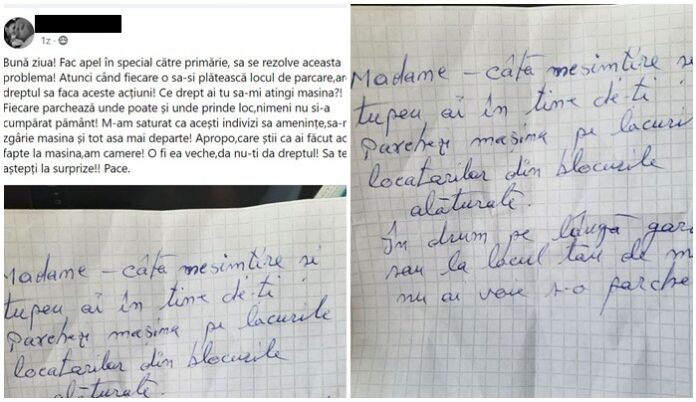 1z
Bună ziua! Fac apel în special către primărie, sa se rezolve aceasta
problema! Atunci când fiecare o sa-si plătească locul de parcare,ar
dreptul sa faca aceste acțiuni! Ce drept ai tu sa-mi atingi masina?!
Fiecare parchează unde poate și unde prinde loc,nimeni nu si-a
cumpărat pământ! M-am saturat ca acești indivizi sa amenințe,sa-r
zgârie masina și tot asa mai departe! Apropo,care știi ca ai făcut ac
fapte la masina,am camere! O fi ea veche,da nu-ti da dreptul! Sa te
aștepți la surprize!! Pace.
Madame - câtă nesimtire și
tupeu ai în tine de-ti
parchezi mașina pe locurile
locatarilor din blocurile
alăturate.
Madame - câtă nesimtire și
tupeu ai în tine de-ti
parchezi mașina pe locuri
locatarilor din blocurile
alăturate.
În drum pe lângă gard
sau la locul tău de m
nu ai voie s-o parche